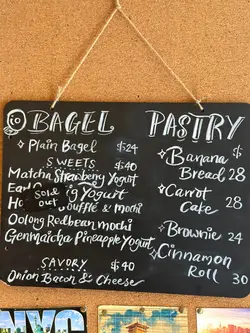 BAGEL
Plain Bagel $24
SWEETS $40
Matcha Strawberry Yogurt
Ea Yogurt
Sold out
Ho Soufflé & Mochi
Oolong Redbean mochi
Genmaicha Pineapple Yogurt
SAVORY $40
Onion Bacon & Cheese
PASTRY
Banana $
Bread 28
Carrot
Cake 28
Brownie 24
Cinnamon
Roll 30
NYC